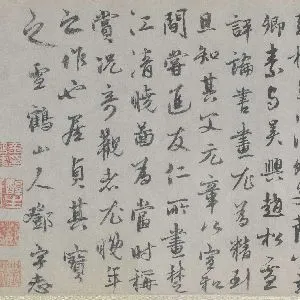 卿素与吴興趙松雪
評論書畫尤為精到
且知其父元章以宣和
間嘗進友仁所畫楚
江清曉啚為當時稱
賞況奇觀者尤晚年
之作也居貞其寶
之雪鶴山人鄧宇志